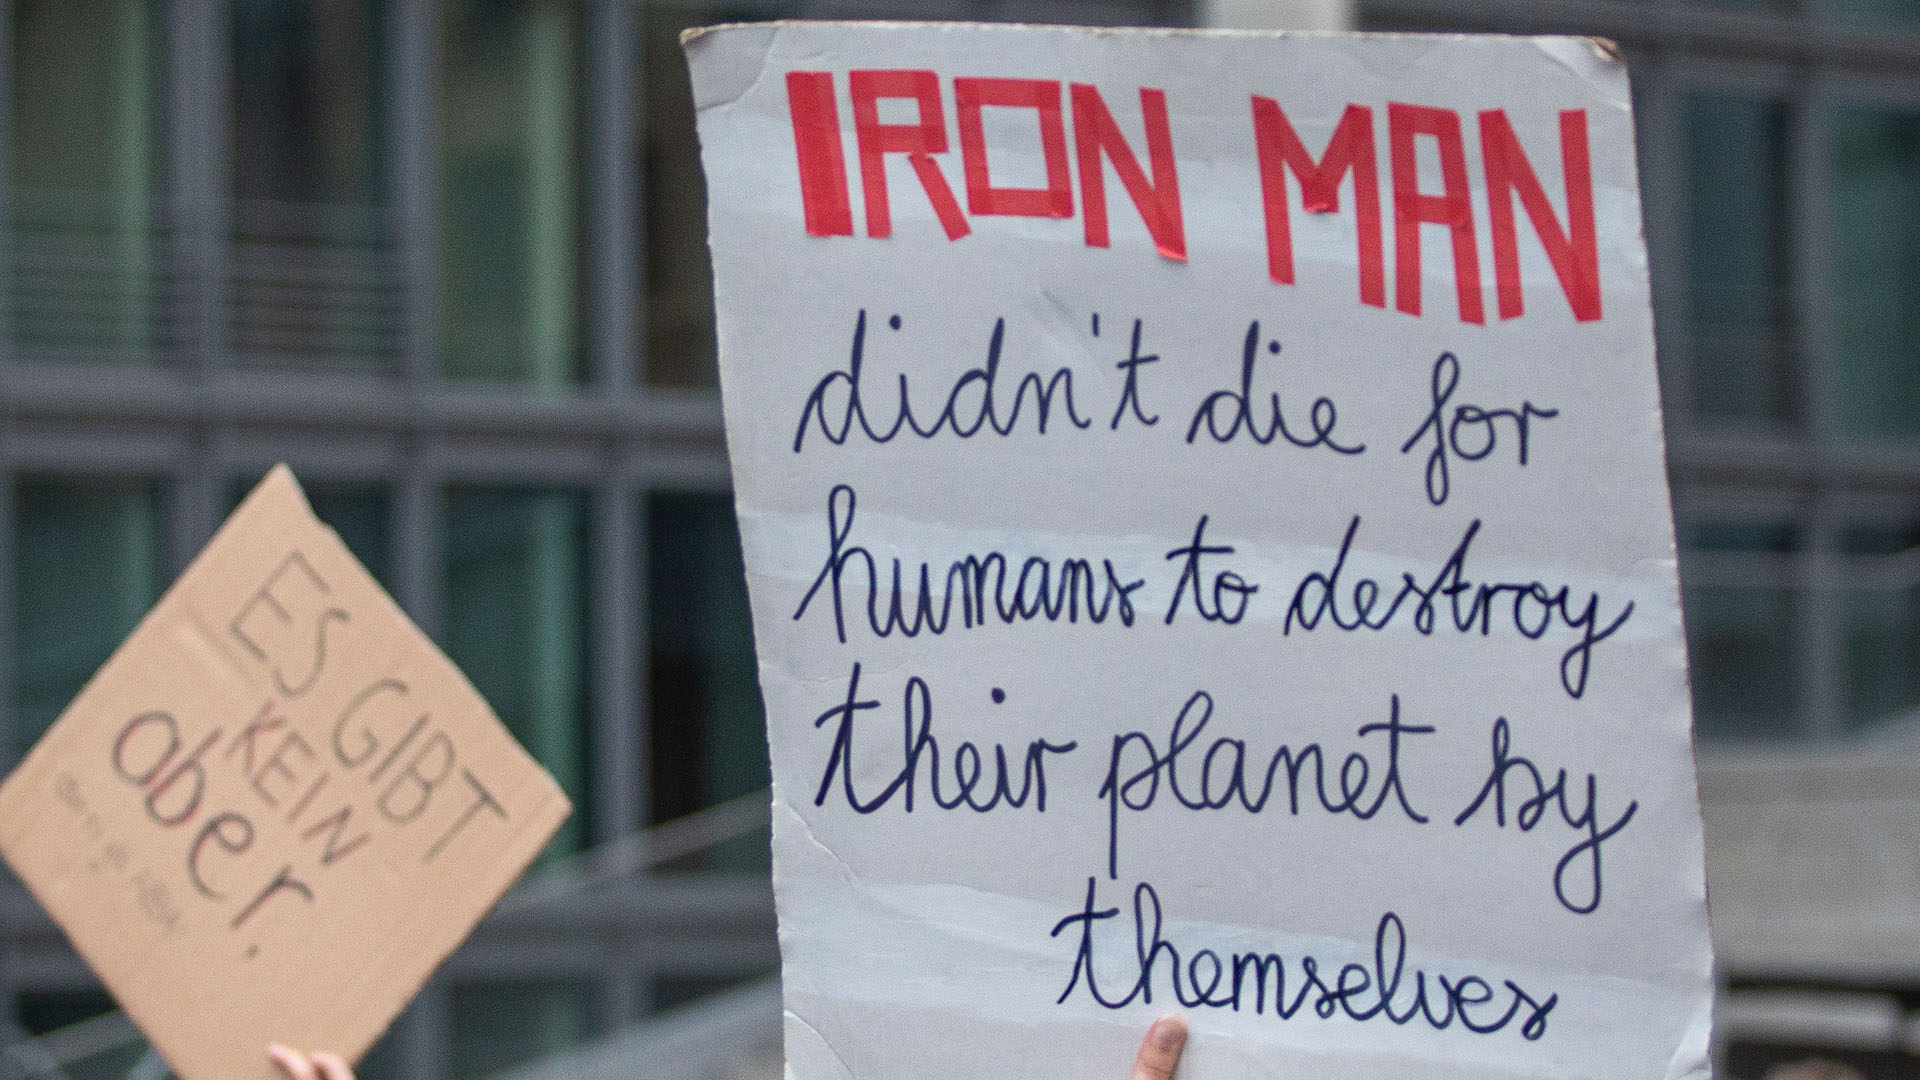 IRON MAN
didn't die for
humans to destroy
their planet by
themselves
ES GIBT
KEIN
aber.